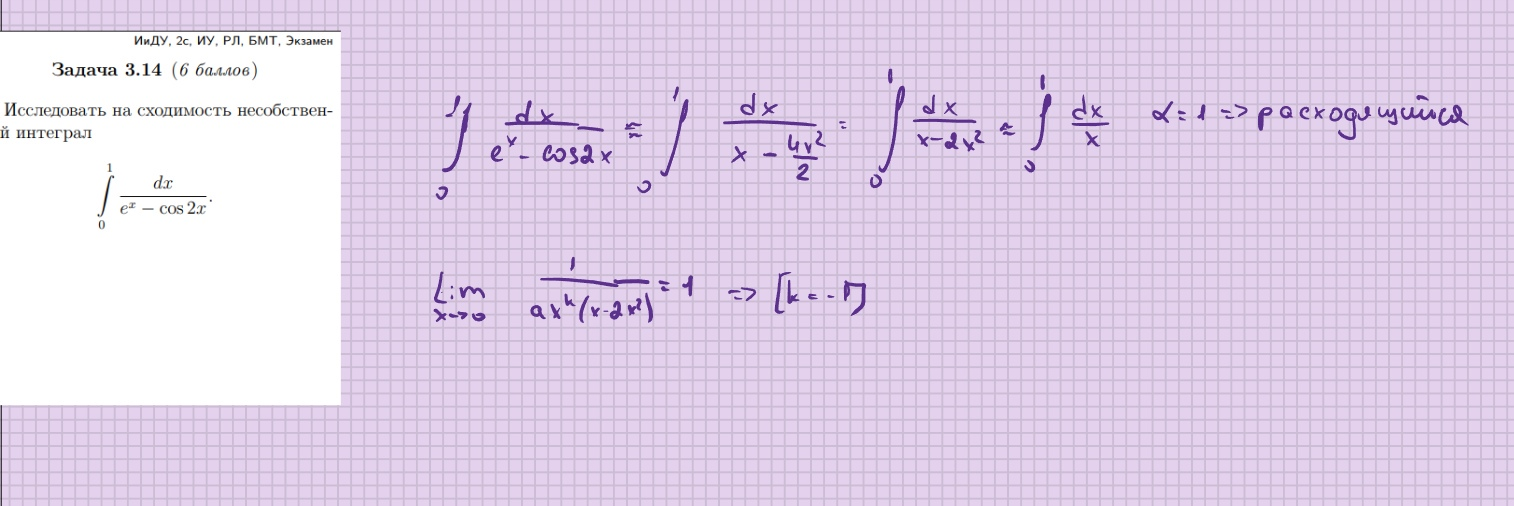 ИиДУ, 2с, ИУ, РЛ, БМТ, Экзамен
Задача 3.14 (6 баллов)
Исследовать на сходимость несобствен-
й интеграл
∫₀¹ dx / (eˣ − cos 2x).
∫₀¹ dx / (eˣ - cos2x) ≈ ∫₀¹ dx / (x - 4x²/2) = ∫₀¹ dx / (x-2x²) ≈ ∫₀¹ dx / x α=1 => расходящийся
Lim x->0 1 / (axᵏ(x-2x²)) = 1 => [k=-1]